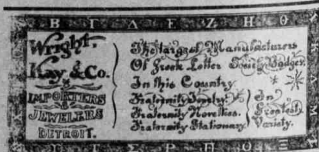 Β Γ Δ Ε Ζ Η Θ
Wright,
Kay, & Co.
IMPORTERS
&
JEWELERS
DETROIT.
The largest Manufacturers
Of Greek Letter Society Badges
In this Country
Fraternity Jewelry.
Fraternity Novelties.
Fraternity Stationary
In
Greatest
Variety.